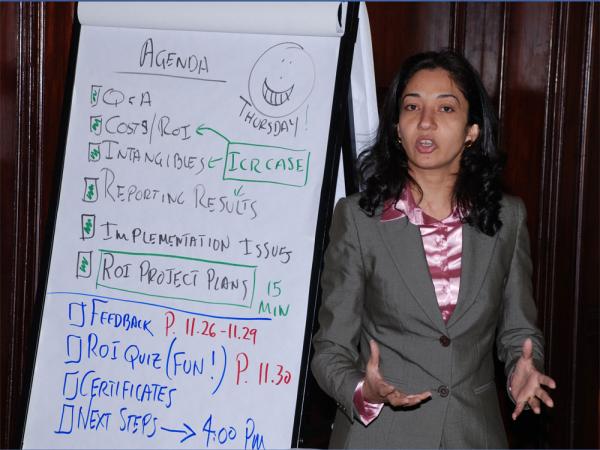 AGENDA
THURSDAY!
Q&A
COSTS/ROI
INTANGIBLES
ICR CASE
REPORTING RESULTS
IMPLEMENTATION ISSUES
ROI PROJECT PLANS
15 MIN
FEEDBACK P. 11.26-11.29
ROI QUIZ (FUN!) P. 11.30
CERTIFICATES
NEXT STEPS → 4:00 PM